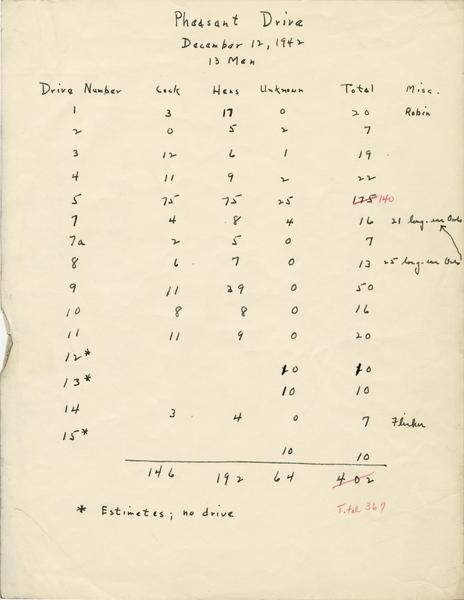 Pheasant Drive
December 12, 1942
13 Men
Drive Number Cock Hens Unknown Total Misc.
1 3 17 0 20 Robin
2 0 5 2 7
3 12 6 1 19
4 11 9 2 22
5 75 75 25 175 140
7 4 8 4 16 21 long-ear Owls
7a 2 5 0 7
8 6 7 0 13 25 long-ear Owls
9 11 39 0 50
10 8 8 0 16
11 11 9 0 20
12*
10 10
13*
10 10
14 3 4 0 7 Flicker
15*
10 10
146 192 64 402
* Estimetes; no drive
Total 367